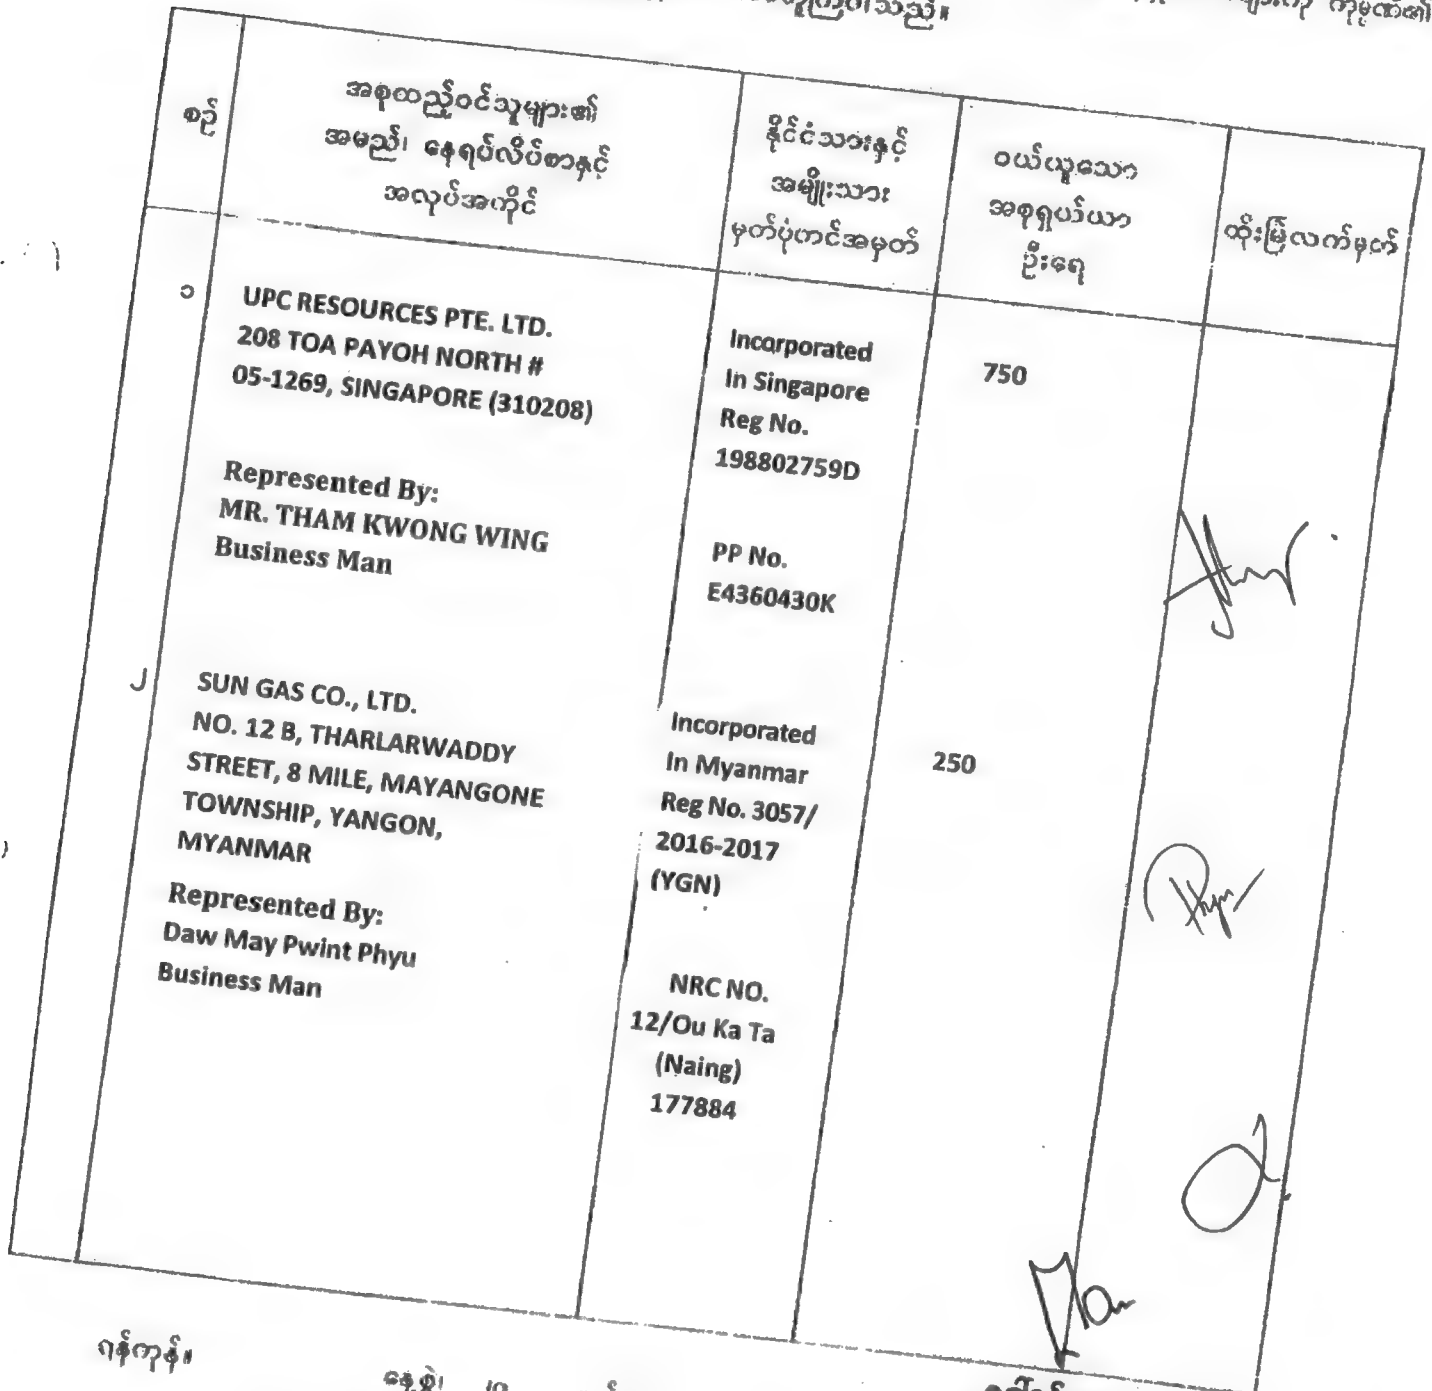 စဉ်
အစုထည့်ဝင်သူများ၏
အမည်၊ နေရပ်လိပ်စာနှင့်
အလုပ်အကိုင်
နိုင်ငံသားနှင့်
အမျိုးသား
မှတ်ပုံတင်အမှတ်
ဝယ်ယူသော
အစုရှယ်ယာ
ဦးရေ
ထိုးမြဲလက်မှတ်
၁
UPC RESOURCES PTE. LTD.
208 TOA PAYOH NORTH #
05-1269, SINGAPORE (310208)
Represented By:
MR. THAM KWONG WING
Business Man
Incorporated
In Singapore
Reg No.
198802759D
PP No.
E4360430K
750
၂
SUN GAS CO., LTD.
NO. 12 B, THARLARWADDY
STREET, 8 MILE, MAYANGONE
TOWNSHIP, YANGON,
MYANMAR
Represented By:
Daw May Pwint Phyu
Business Man
Incorporated
In Myanmar
Reg No. 3057/
2016-2017
(YGN)
NRC NO.
12/Ou Ka Ta
(Naing)
177884
250
ရန်ကုန်။